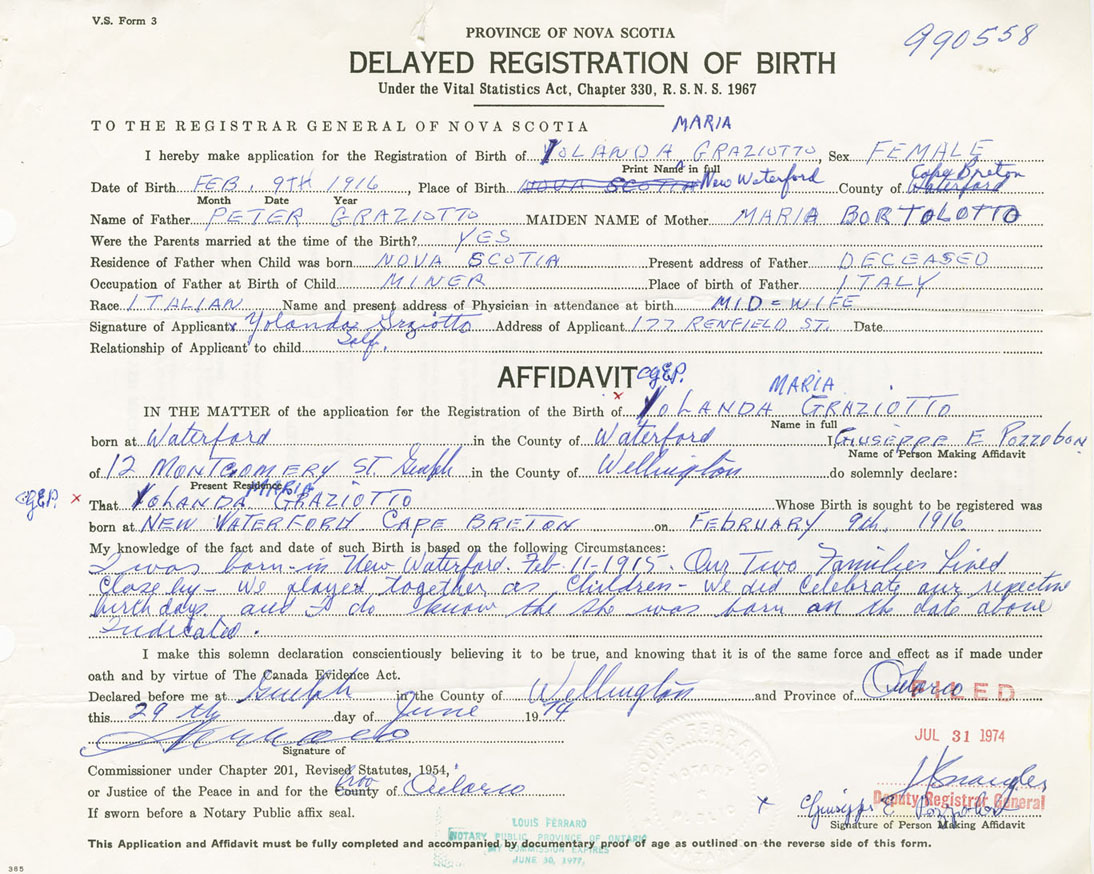 V.S. Form 3
990558
PROVINCE OF NOVA SCOTIA
DELAYED REGISTRATION OF BIRTH
Under the Vital Statistics Act, Chapter 330, R. S. N. S. 1967
TO THE REGISTRAR GENERAL OF NOVA SCOTIA MARIA
I hereby make application for the Registration of Birth of YOLANDA GRAZIOTTO, Sex FEMALE
Print Name in full
Cape Breton
Date of Birth FEB. 9TH 1916, Place of Birth NOVA SCOTIA New Waterford County of Waterford
Month Date Year
Name of Father PETER GRAZIOTTO MAIDEN NAME of Mother MARIA BORTOLOTTO
Were the Parents married at the time of the Birth? YES
Residence of Father when Child was born NOVA SCOTIA Present address of Father DECEASED
Occupation of Father at Birth of Child MINER Place of birth of Father ITALY
Race ITALIAN Name and present address of Physician in attendance at birth MID=WIFE
Signature of Applicant x Yolanda Grziotto Address of Applicant 177 RENFIELD ST. Date
Relationship of Applicant to child Self.
AFFIDAVIT GEP.
x MARIA
IN THE MATTER of the application for the Registration of the Birth of YOLANDA GRAZIOTTO
Name in full
born at Waterford in the County of Waterford I GIUSEPPE E POZZOBON
Name of Person Making Affidavit
of 12 MONTGOMERY ST. Guelph in the County of Wellington do solemnly declare:
Present Residence MARIA
GEP. x That YOLANDA GRAZIOTTO Whose Birth is sought to be registered was
born at NEW WATERFORD CAPE BRETON on FEBRUARY 9th, 1916
My knowledge of the fact and date of such Birth is based on the following Circumstances:
I was born-in New Waterford. Feb. 11-1915. Our Two Families Lived
Close by - We played together as Children - We did Celebrate our repective
birthdays and I do know the she was born on the date above
indicated.
I make this solemn declaration conscientiously believing it to be true, and knowing that it is of the same force and effect as if made under
oath and by virtue of The Canada Evidence Act.
Declared before me at Guelph in the County of Wellington and Province of Ontario
FILED
this 29th day of June 1974
JUL 31 1974
Signature of
Commissioner under Chapter 201, Revised Statutes, 1954,
or Justice of the Peace in and for the County of Ontario
Deputy Registrar General
x Giuseppe E Pozzobon
Signature of Person Making Affidavit
If sworn before a Notary Public affix seal.
LOUIS FERRARO
NOTARY PUBLIC, PROVINCE OF ONTARIO
MY COMMISSION EXPIRES
JUNE 30, 1977,
This Application and Affidavit must be fully completed and accompanied by documentary proof of age as outlined on the reverse side of this form.
385